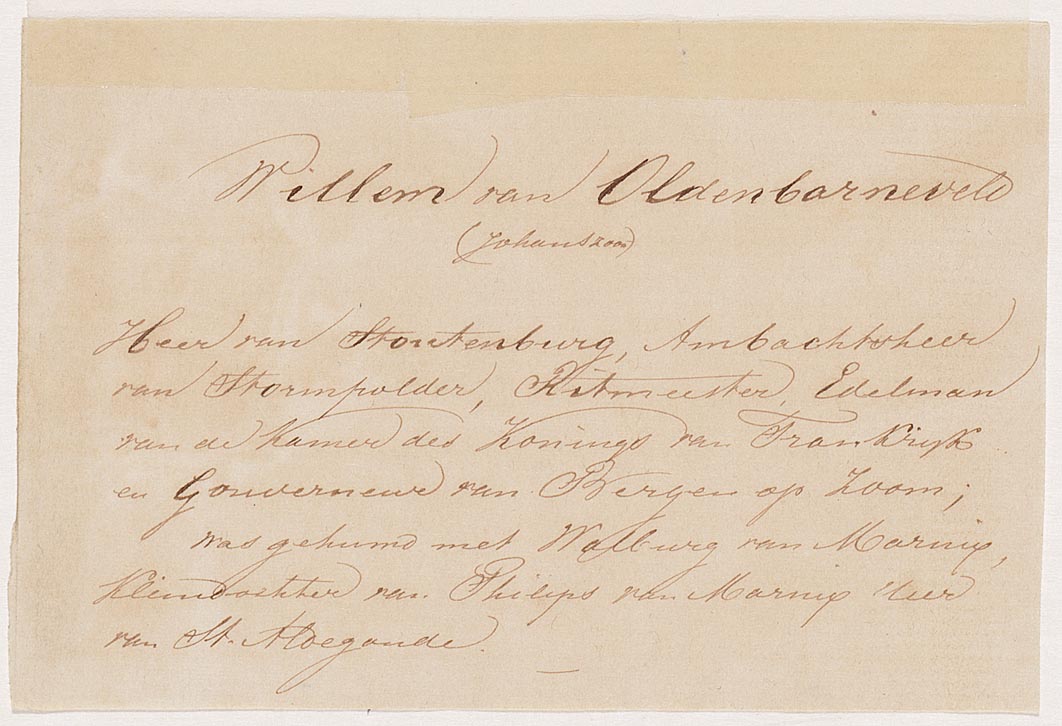 Willem van Oldenbarneveld
(Johanszoon)
Heer van Stoutenburg, Ambachtsheer
van Stormpolder, Ritmeester, Edelman
van de kamer des Konings van Frankrijk
en Gouverneur van Bergen op Zoom;
was gehuwd met Walburg van Marnix,
Kleindochter van Philips van Marnix Heer
van St. Aldegonde.